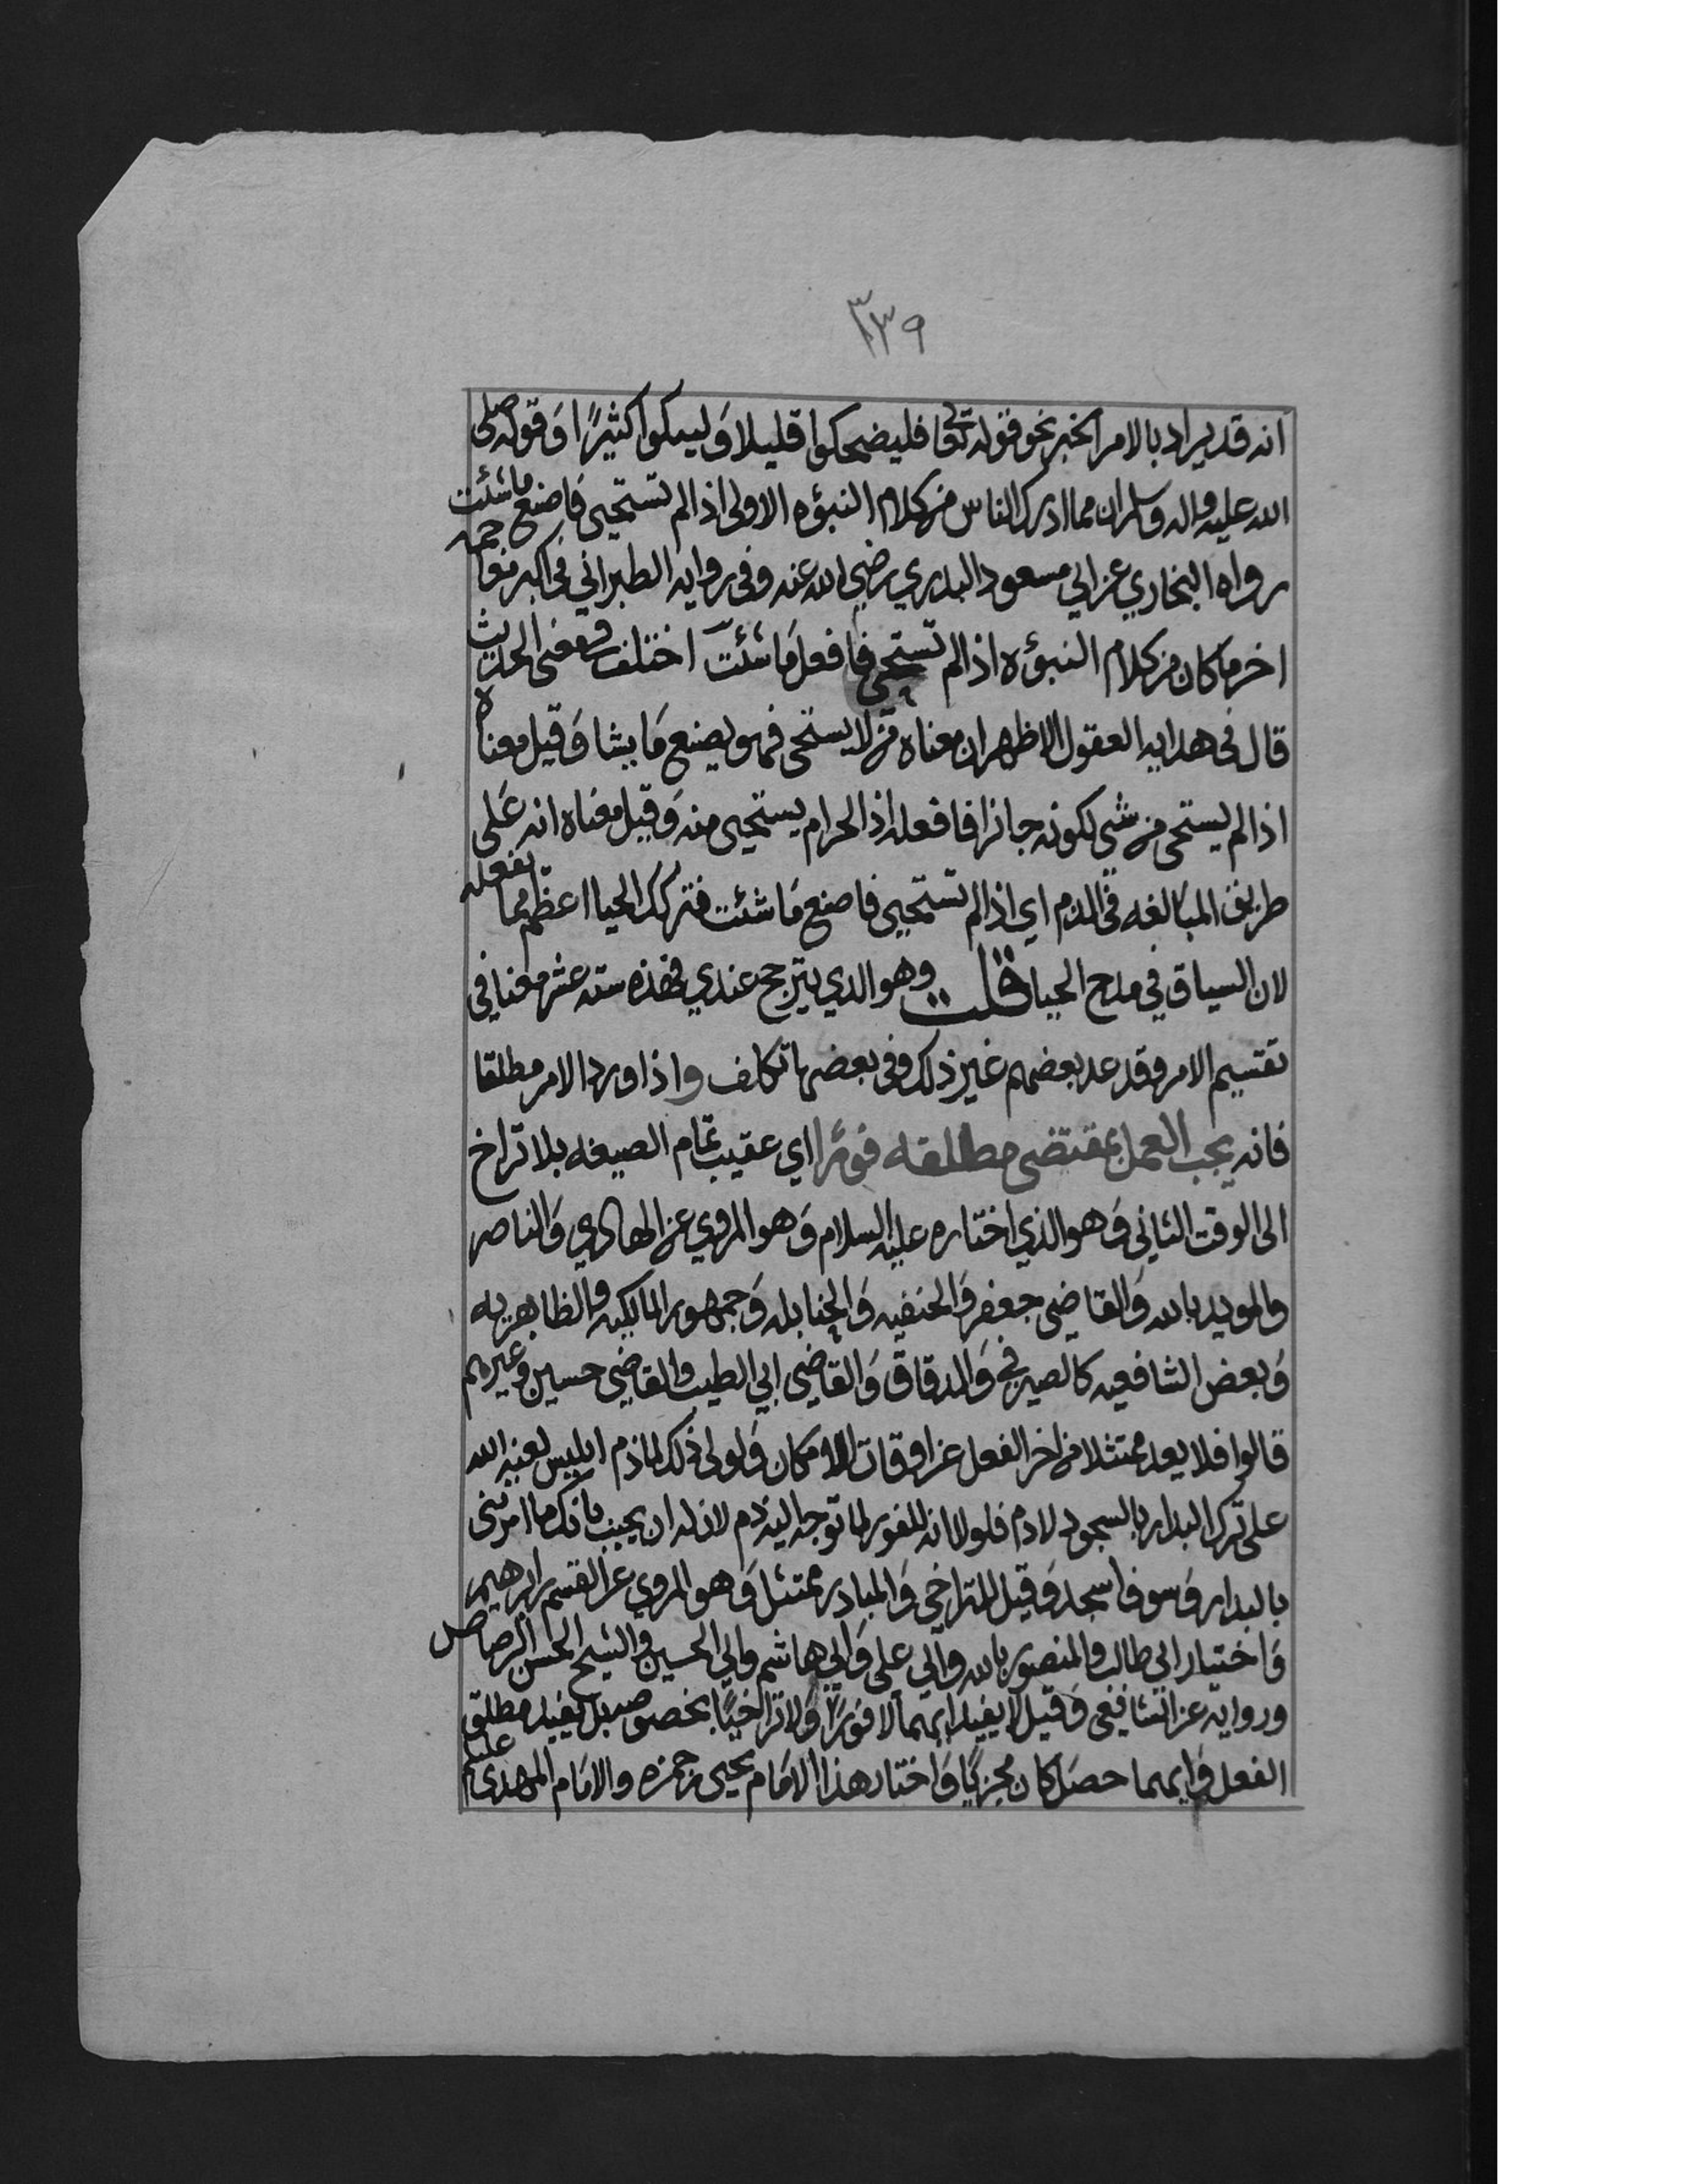 ٣٣٩
انه قد يراد بالامر الخبر نحو قوله تعالى فليضحكوا قليلا وَليبكوا كثيرًا وَقوله صلى
الله عليه واله وسلم ان مما ادرك الناس من كلام النبؤه الاولى اذا لم تستحيى فاصنع ما شئت
رواه البخاري عن ابي مسعود البدري رضي الله عنه وفي روايه الطبراني في اكبر معاجمه
اخر ما كان من كلام النبؤه اذا لم تستحي فافعل مَا شئت اختلف في معنى الحديث
قال في هدايه العقول الاظهر ان معناه من لا يستحي فهو يصنع مَا يشا وَقيل معناه
اذا لم يستحي من شي لكونه جائزا فافعله اذ الحرام يستحيى منه وَقيل معناه انه عَلى
طريق المبَالغه في الذم اي اذا لم تستحيي فاصنع مَا شئت فتركك الحيا اعظم مما تفعله
لان السياق في مدح الحيا قلت وهو الذي يترجح عندي فهذه سته عشر معنا في
تقسيم الامر وقد عد بعضهم غير ذلك وفي بعضها تكلف واذا ورد الامر مطلقا
فانه يجب العمل بمقتضى مطلقه فورًا اي عقيب تمام الصيغه بلا تراخ
الى الوقت الثاني وَهو الذي اختاره عليه السلام وَهو المروي عن الهادي وَالناصر
والمويد بالله وَالقاضي جعفر وَالحنفيه وَالحنابله وَجمهور المالكيه والظاهريه
وَبعض الشافعيه كالصيرفي وَالدقاق وَالقاضي ابي الطيب والقاضي حسين وغيرهم
قالوا فلا يعد ممتثلا من اخر الفعل عن اوقات الامكان وَلولى ذلك لما ذم ابليس لعنه الله
على ترك البدار بالسجود لادم فلولا انه للفور لما توجه اليه ذم لان له ان يجيب بانك ما امرتني
بالبدار وَسوف اسجد وَقيل للتراخي وَالمبادر ممتثل وَهو المروي عن القسم بن ابرهيم
وَاختيار ابي طالب والمنصور بالله وابي على وَابي هاشم وابي الحسين والشيخ الحسن الرصاص
وروايه عن الشافعي وَقيل لا يفيد ايهما لا فورًا وَلا تراخيًا بخصوصه بل يفيد مطلق
الفعل وَايهما حصَل كان مجزيًا وَاختار هذا الامَام يحيى بن حمزه والامَام المهدى عليلم